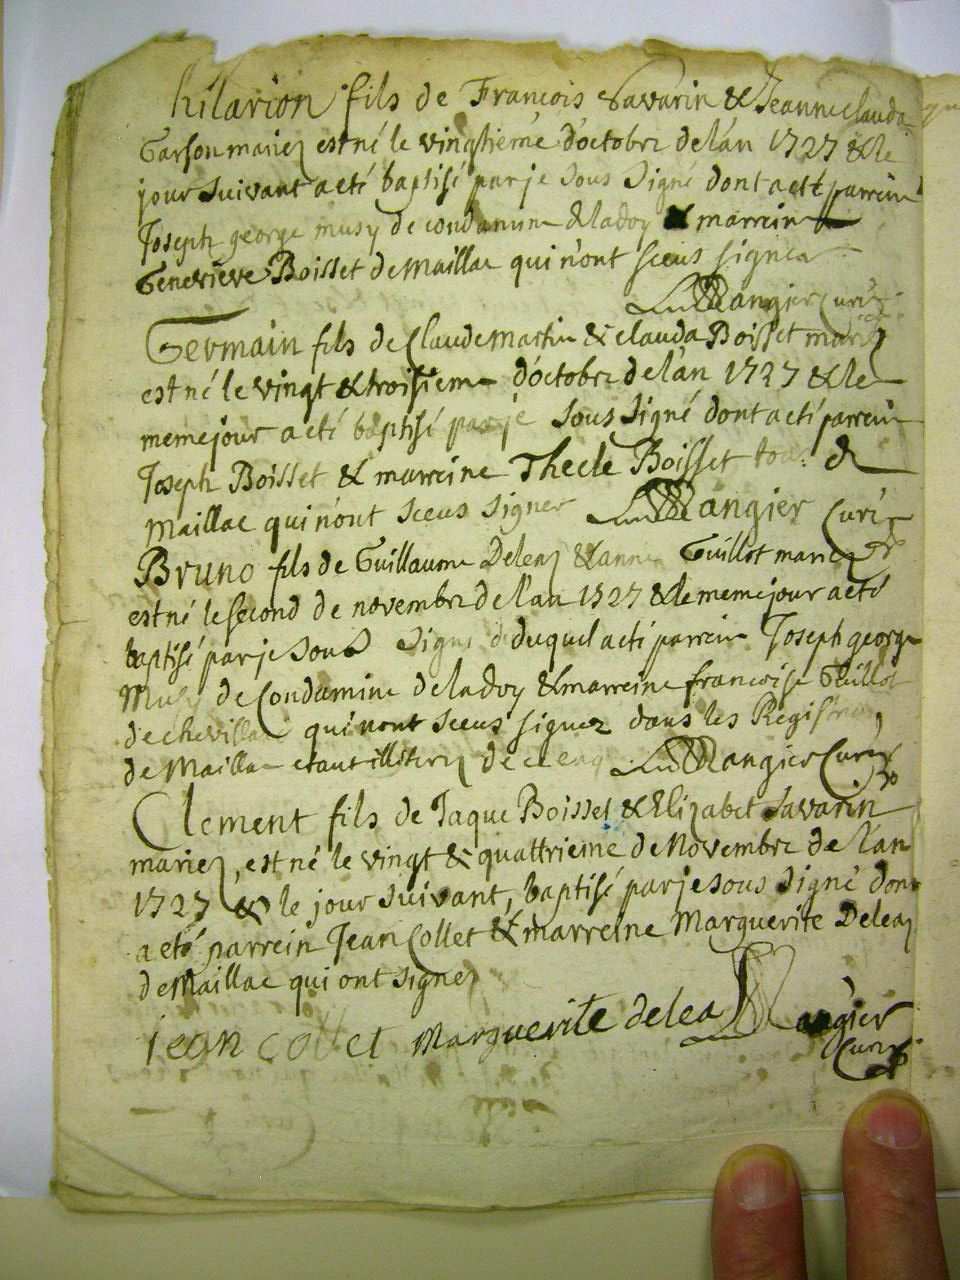 hilarion fils de François Savarin & Jeanne clauda
Garson mariez est né le vingtiéme d'octobre de l'an 1727 & le
jour suivant a eté baptisé par je sous signé dont a eté parrein
Joseph george musy de condamine de ladoy & marreine
Genevieve Boisset de Maillac qui n'ont sceus signer
Mangier Curé
Germain fils de Claude Martin & clauda Boisset mariez
est né le vingt & troisieme d'octobre de l'an 1727 & le
meme jour a eté baptisé par je sous signé dont a eté parrein
Joseph Boisset & marreine Thecle Boisset tous de
Maillac qui n'ont sceus signer Mangier Curé
Bruno fils de Guillaume Deleaz & anne Guillot mariez
est né le second de novembre de l'an 1727 & le meme jour a eté
baptisé par je sous signé duquel a eté parrein Joseph george
Musy de Condamine de ladoy & marreine françoise Guillot
de chevillac qui n'ont sceus signer dans les Registres
de Maillac etant Mangier Curé
Clement fils de Jaque Boisset & Elizabet Savarin
mariez, est né le vingt & quattrieme de Novembre de l'an
1727 & le jour suivant, baptisé par je sous signé dont
a eté parrein Jean Collet & marreine Marguerite Deleaz
de Maillac qui ont signez
jean collet Marguerite delea Mangier
Curé